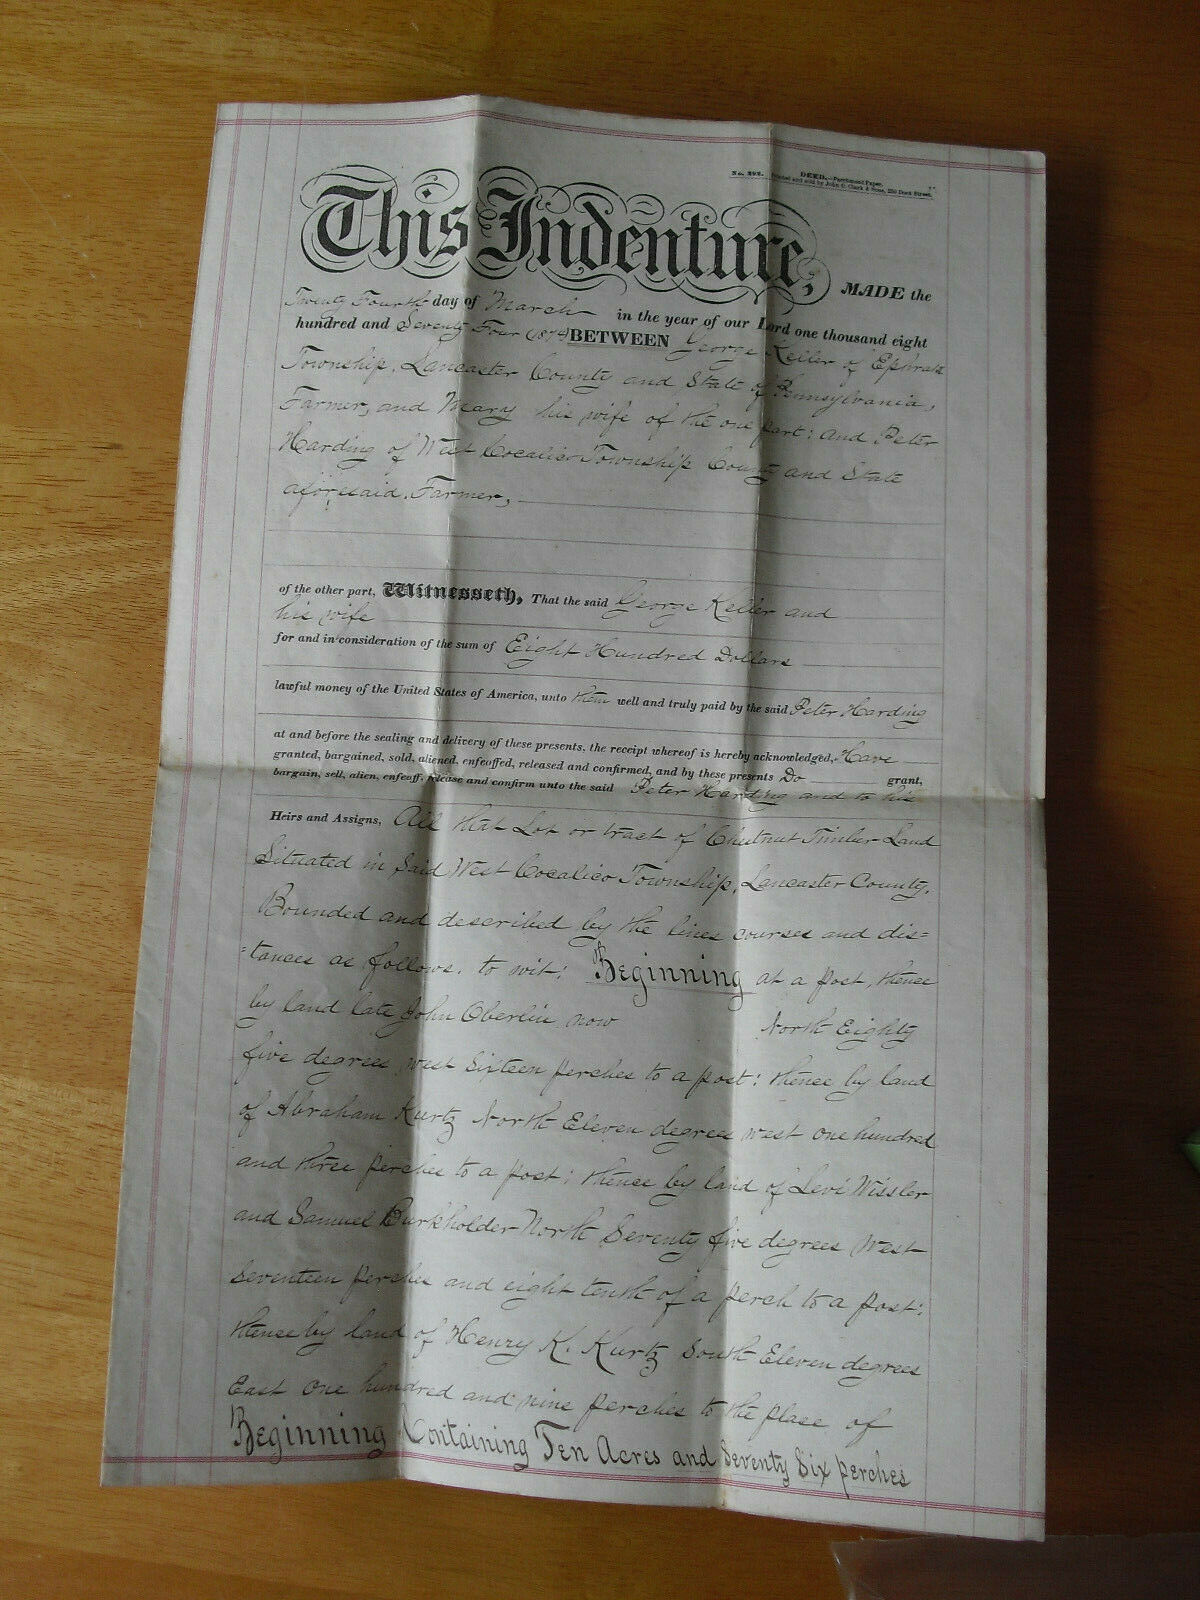 No. 392. DEED.—Parchment Paper.
Printed and sold by John C. Clark & Sons, 230 Dock Street.
This Indenture, MADE the
Twenty Fourth day of March in the year of our Lord one thousand eight
hundred and Seventy Four (1874) BETWEEN George Keller of Ephrata
Township, Lancaster County and State of Pennsylvania,
Farmer, and Mary his wife of the one part: and Peter
Harding of West Cocalico Township County and State
aforesaid, Farmer,
of the other part, Witnesseth, That the said George Keller and
his wife
for and in consideration of the sum of Eight Hundred Dollars
lawful money of the United States of America, unto them well and truly paid by the said Peter Harding
at and before the sealing and delivery of these presents, the receipt whereof is hereby acknowledged, Have
granted, bargained, sold, aliened, enfeoffed, released and confirmed, and by these presents Do grant,
bargain, sell, alien, enfeoff, release and confirm unto the said Peter Harding and to his
Heirs and Assigns, All that Lot or tract of Chestnut Timber Land
Situated in Said West Cocalico Township, Lancaster County.
Bounded and described by the lines courses and dis=
=tances as follows. to wit: Beginning at a post, thence
by land late John Oberlin, now North Eighty
five degrees west Sixteen perches to a post: thence by land
of Abraham Kurtz North Eleven degrees west one hundred
and three perches to a post; thence by land of Levi Wissler
and Samuel Burkholder North Seventy five degrees West
Seventeen perches and eight tenth of a perch to a post;
thence by land of Henry K. Kurtz South Eleven degrees
East One hundred and nine perches to the place of
Beginning Containing Ten Acres and Seventy Six perches